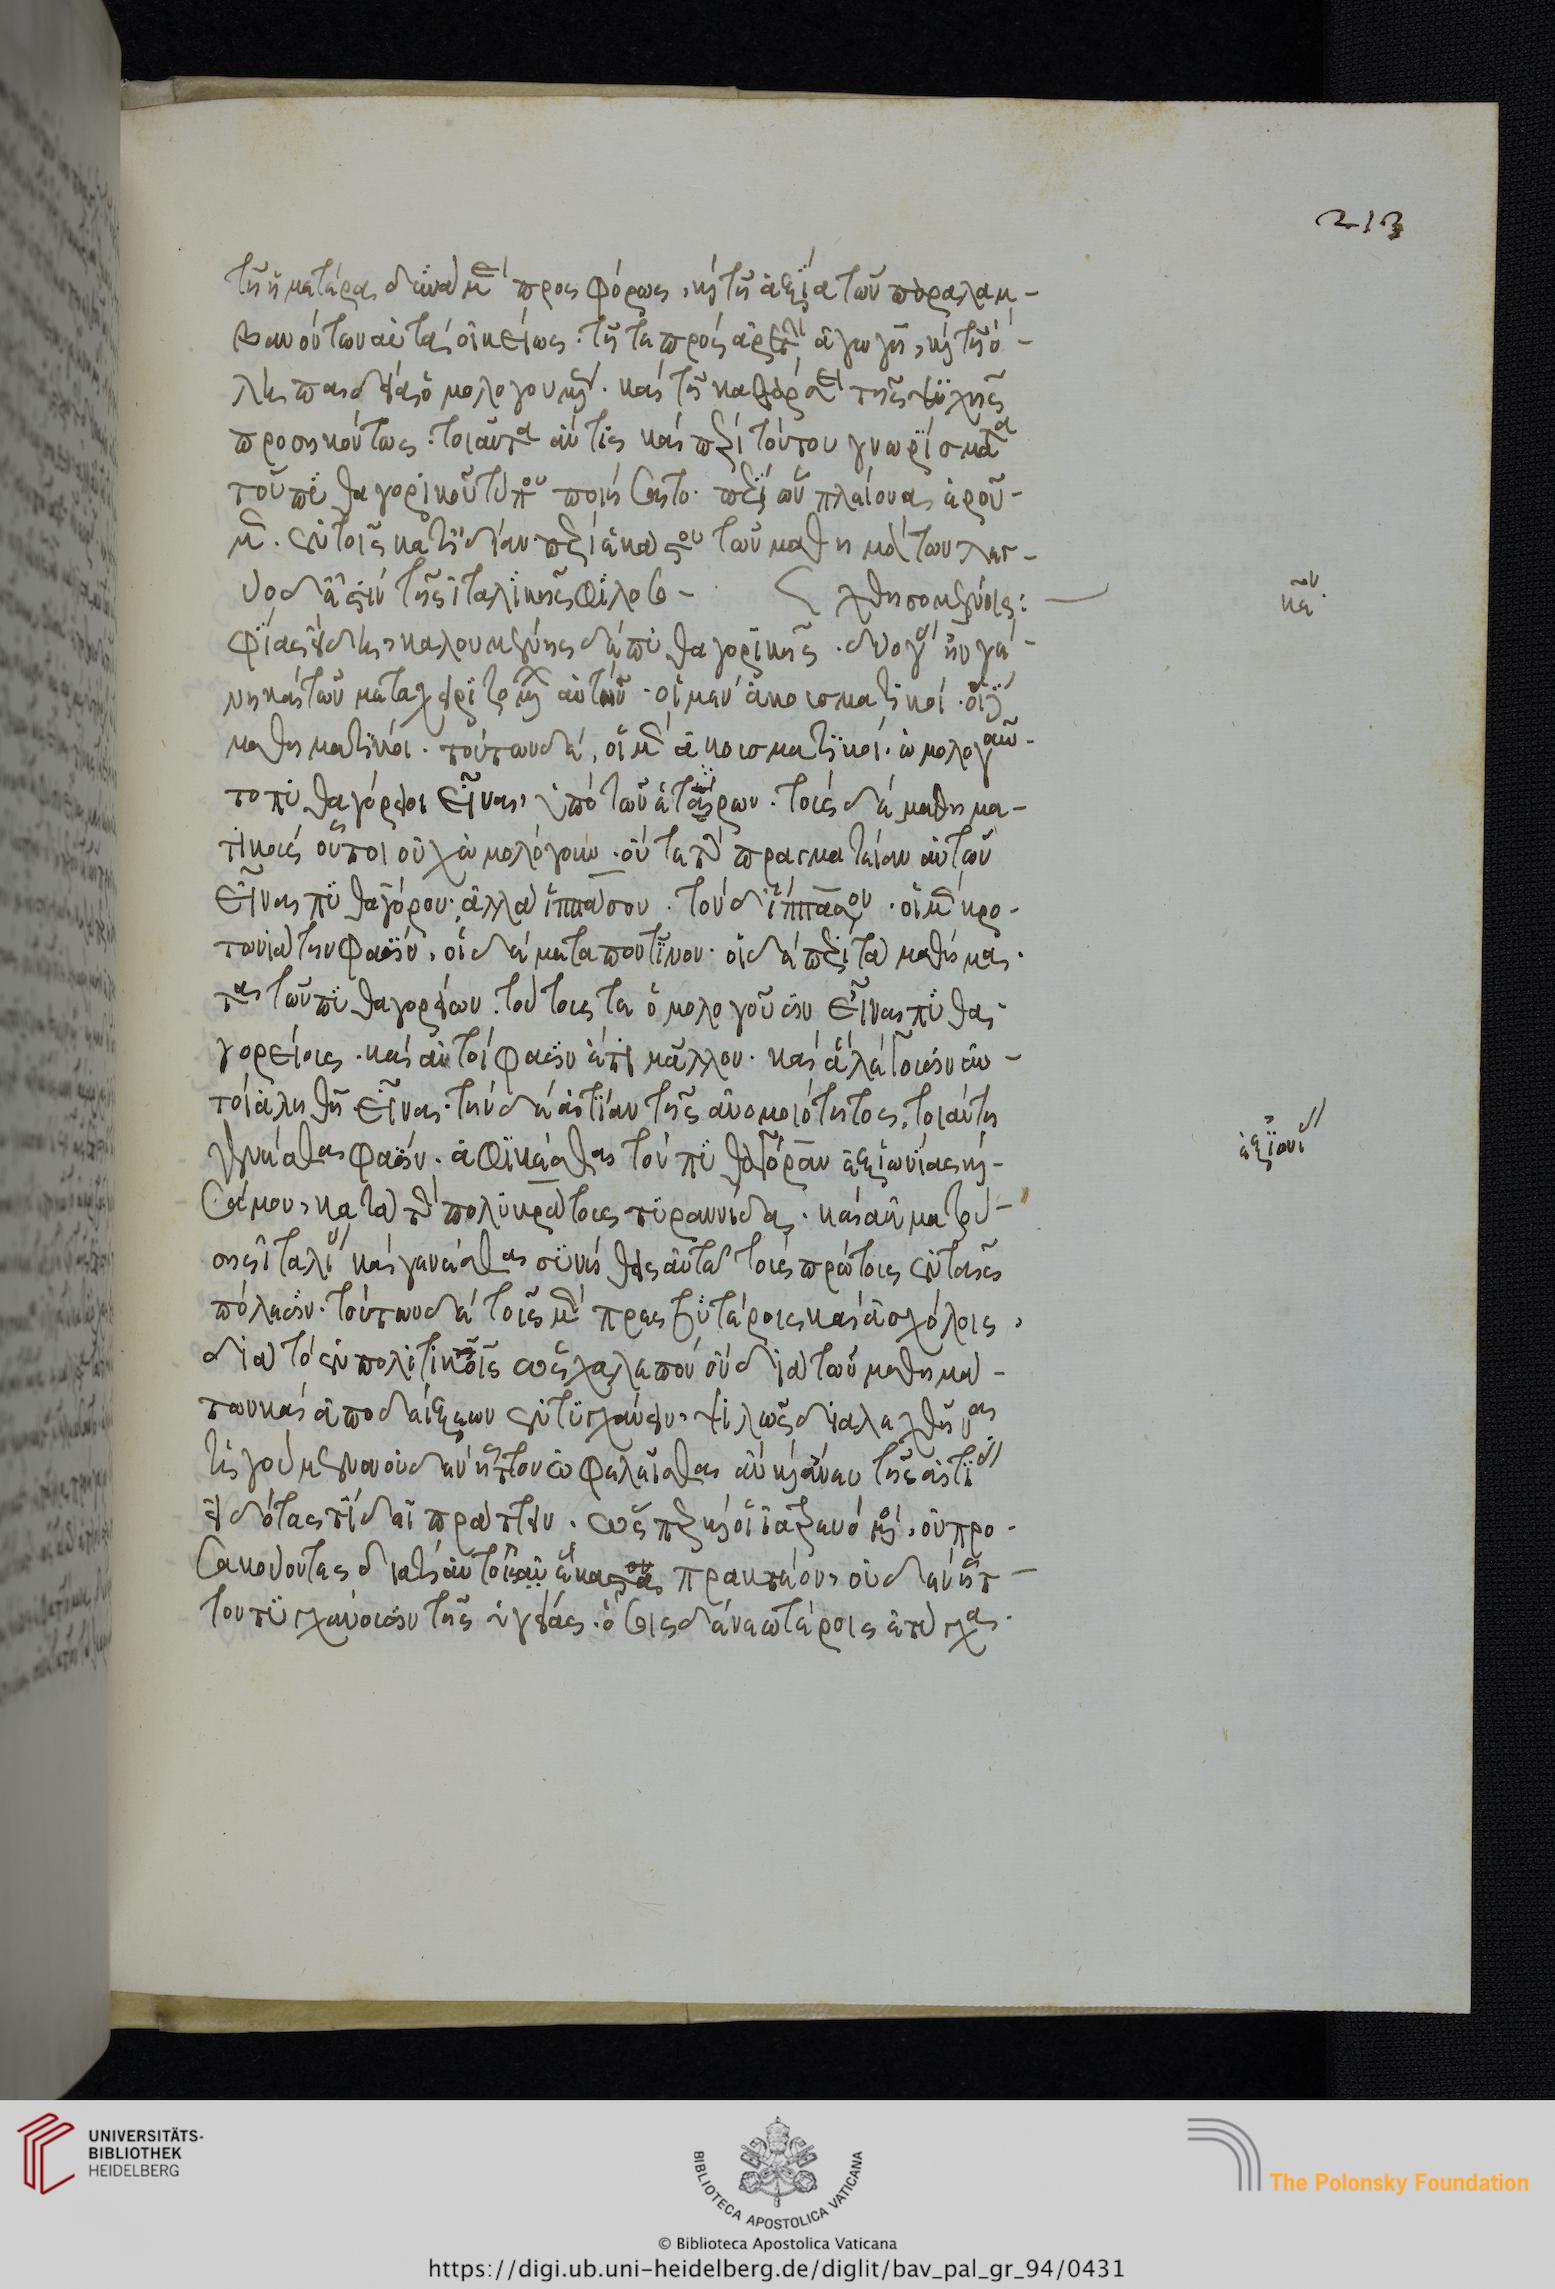 213
τῆ ἡμετέρα δυνάμει προσφόρως, καὶ τῆ ἀξία τῶν παραλαμ-
βανόντων αὐτὰ οἰκείως· τῆ τε πρὸς ἀρετὴν ἀγωγῆ, καὶ τῆ ὅ-
λη παιδεία ὁμολογουμένως· καὶ τῆ καθάρσει τῆς ψυχῆς
προσηκόντως· τοιαῦτα ἄν τις καὶ περὶ τούτου γνωρίσματα
τοῦ πυθαγορικοῦ τύπου ποιήσαιτο· περὶ ὧν πλείονα ἐροῦ-
μεν. ἐν τοῖς κατ' ἰδίαν περὶ ἑκάστου τῶν μαθημάτων λεγ-
χθησομένοις:
κε
δύο δ' ἐστὶν τῆς ἰταλικῆς φιλοσο-
φίας εἴδη, καλουμένης δὲ πυθαγορικῆς· δύο γὰρ ἦν γέ-
νη καὶ τῶν μεταχειριζομένων αὐτήν· οἱ μὲν ἀκουσματικοί· οἱ δὲ
μαθηματικοί· τούτων δὲ, οἱ μὲν ἀκουσματικοί· ὡμολογοῦν-
το πυθαγόρειοι εἶναι, ὑπὸ τῶν ἑτέρων· τοὺς δὲ μαθημα-
τικοὺς οὗτοι οὐχ ὡμολόγουν· οὔτε τὴν πραγματείαν αὐτῶν
εἶναι πυθαγόρου· ἀλλὰ ἱππάσου· τὸν δ' ἵππασον· οἱ μὲν κρο-
τωνιάτην φασίν, οἱ δὲ μεταποντῖνον· οἱ δὲ περὶ τὰ μαθήμα-
τα τῶν πυθαγορείων· τούτους τε ὁμολογοῦσιν εἶναι πυθα-
γορείους· καὶ αὐτοί φασιν ἔτι μᾶλλον· καὶ ἃ λέγουσιν αὐ-
τοὶ ἀληθῆ εἶναι· τὴν δὲ αἰτίαν τῆς ἀνομοιότητος, τοιαύτην
γενέσθαι φασίν· ἀφικέσθαι τὸν πυθαγόραν ἐξ ἰωνίας καὶ
ἐξ ἰωνί
σάμου, κατὰ τὴν πολυκράτους τυραννίδα· καὶ ἀκμαζού-
σης ἰταλίας καὶ γενέσθαι συνήθεις αὐτῶ τοὺς πρώτους ἐν ταῖς
πόλεσιν· τούτων δὲ τοῖς μὲν πρεσβυτέροις καὶ ἀσχόλοις,
διὰ τὸ ἐν πολιτικοῖς ὡς χαλεπὸν ὂν διὰ τῶν μαθημά-
των καὶ ἀποδείξεων ἐντυγχάνειν, ψιλῶς διαλεχθῆναι
ἡγούμενον οὐδὲν ἧττον ὠφελεῖσθαι ἂν καὶ ἄνευ τῆς αἰτίας
εἰδότας τί δεῖ πράττειν· ὥσπερ καὶ οἱ ἰατρευόμενοι, οὐ προ-
σακούοντες διὰ τί αὐτοῖς ἕκαστα πρακτέον, οὐδὲν ἧτ-
τον τυγχάνουσιν τῆς ὑγείας· ὅσοις δὲ νεωτέροις ἐτύγχα-
UNIVERSITÄTS-
BIBLIOTHEK
HEIDELBERG
BIBLIOTECA APOSTOLICA VATICANA
The Polonsky Foundation
© Biblioteca Apostolica Vaticana
https://digi.ub.uni-heidelberg.de/diglit/bav_pal_gr_94/0431